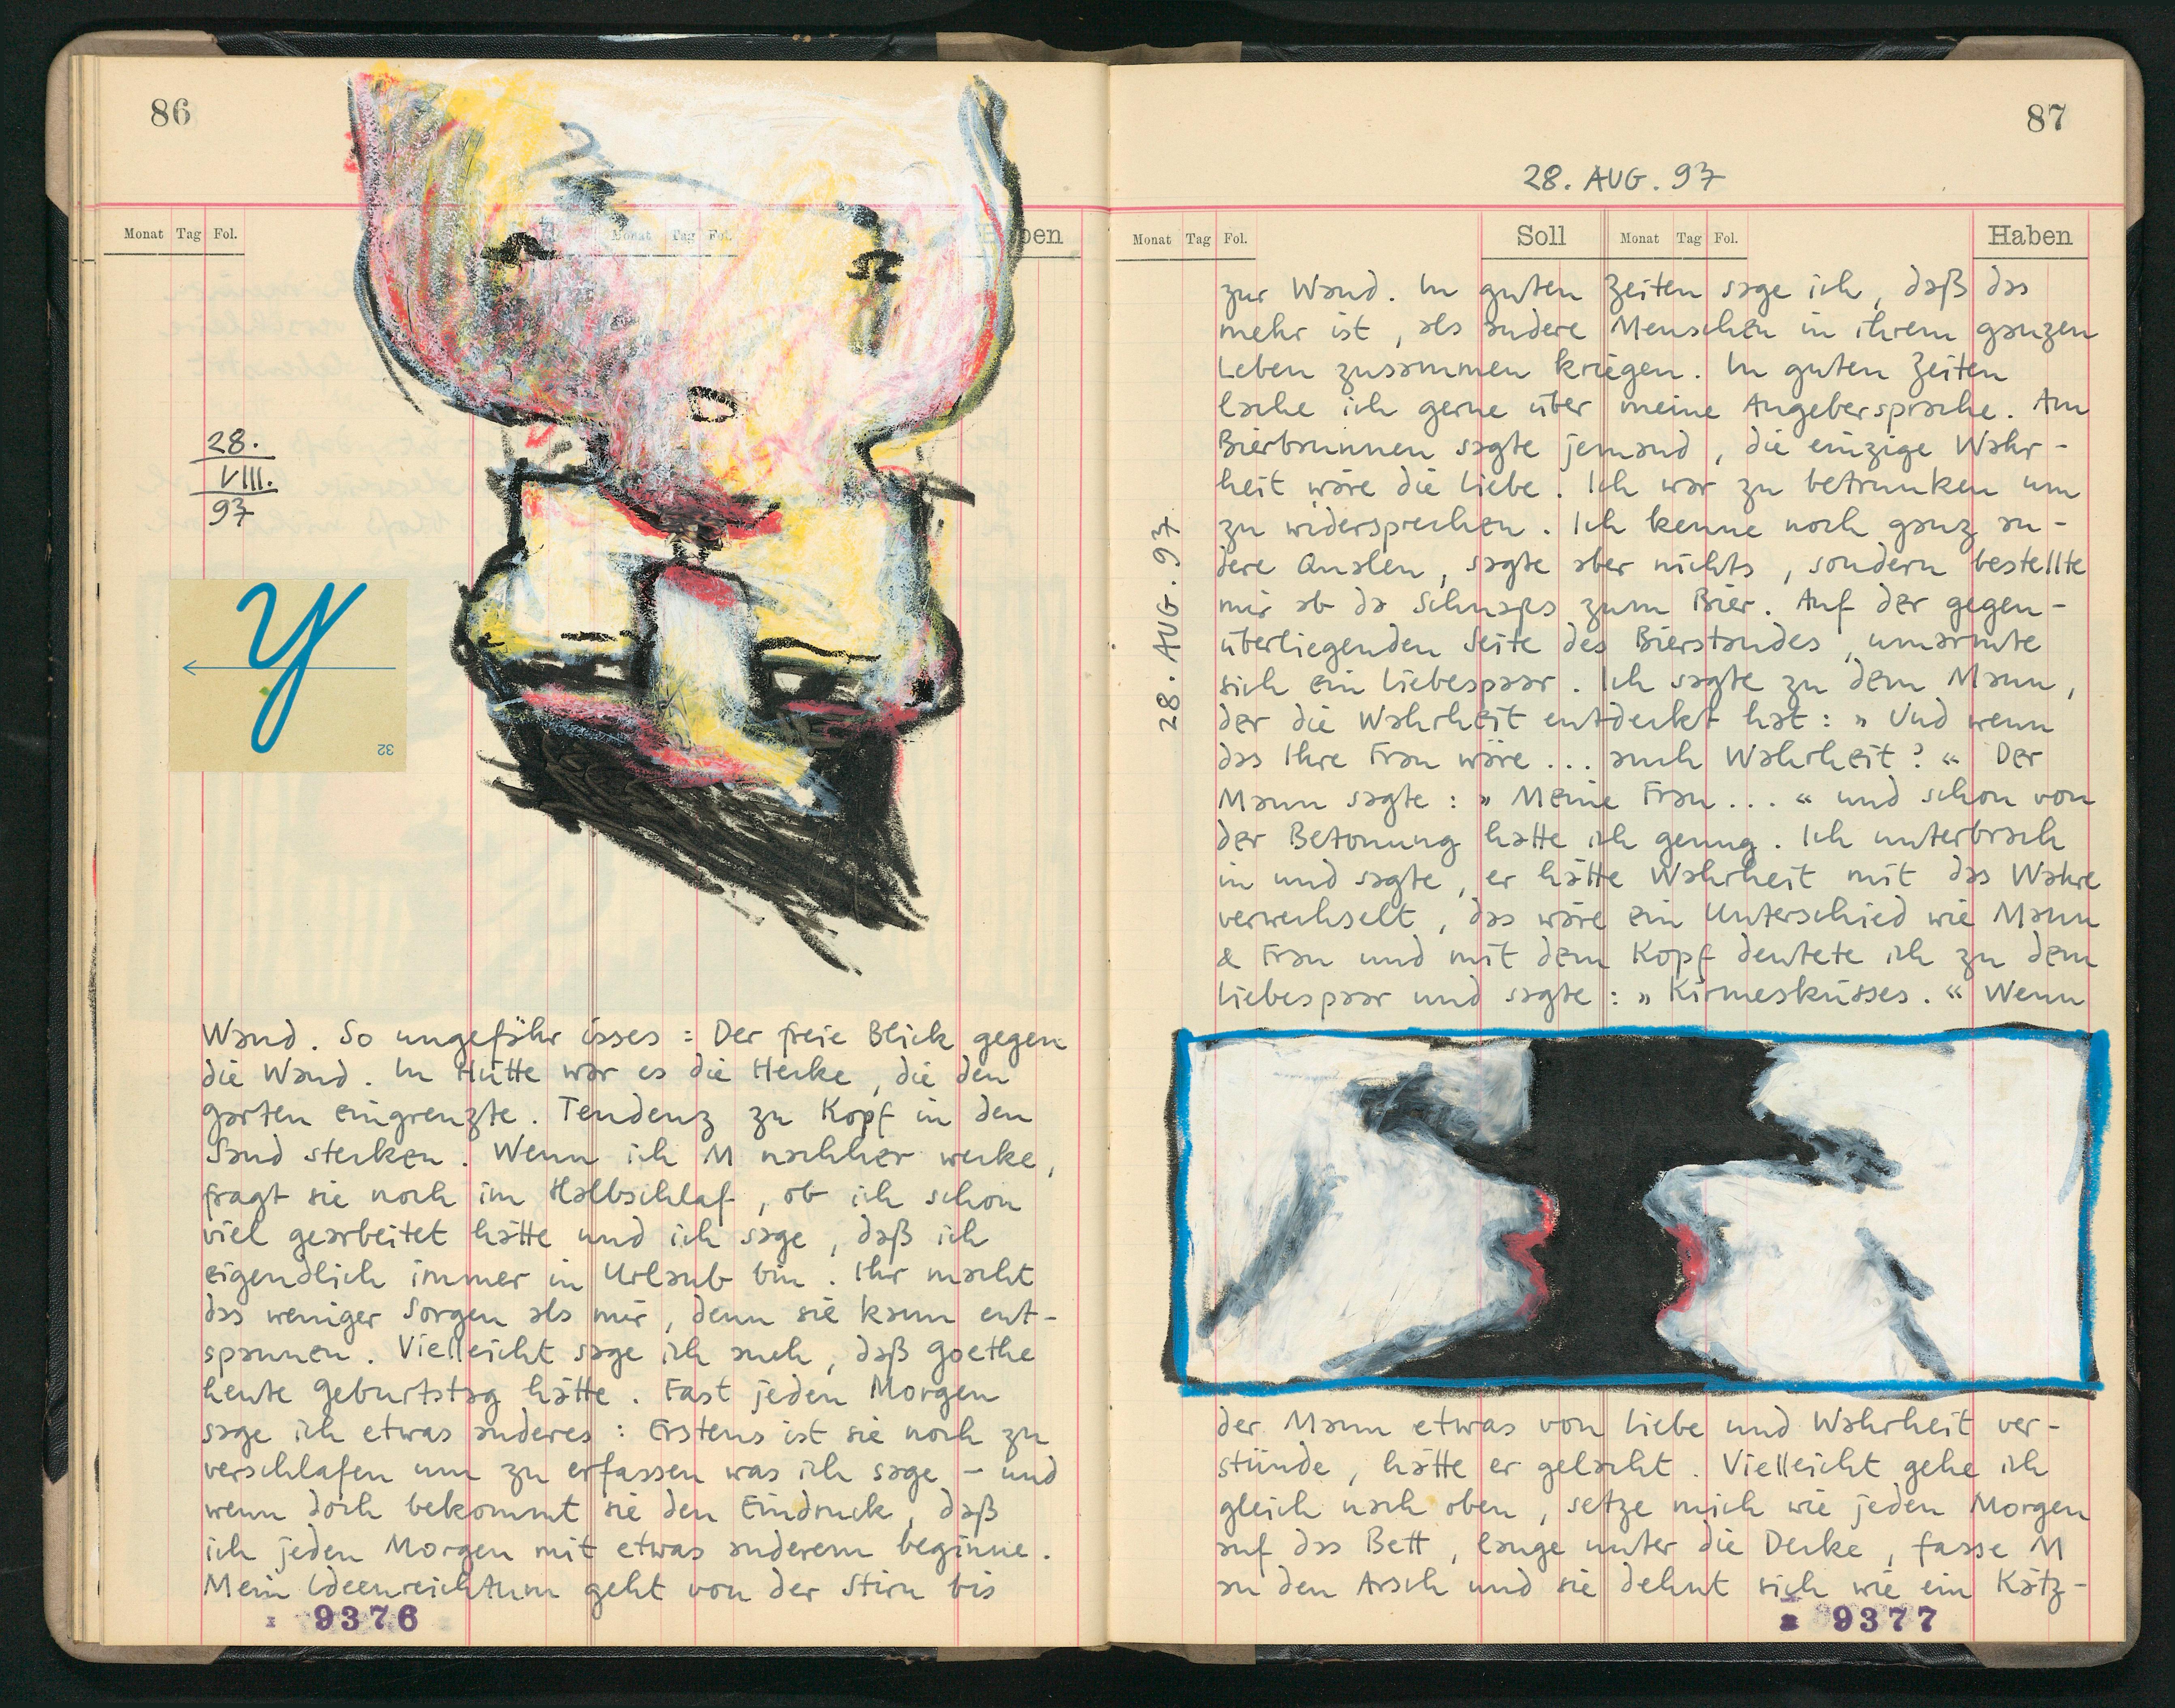 86
Monat Tag Fol.
Monat Tag Fol.
Haben
28.
VIII.
97
y
32
Wand. So ungefähr isses : Der freie Blick gegen
die Wand. In Hütte war es die Hecke, die den
Garten eingrenzte. Tendenz zu Kopf in den
Sand stecken. Wenn ich M nachher wecke,
fragt sie noch im Halbschlaf, ob ich schon
viel gearbeitet hätte und ich sage, daß ich
eigendlich immer in Urlaub bin. Ihr macht
das weniger Sorgen als mir, denn sie kann ent-
spannen. Vielleicht sage ich auch, daß Goethe
heute Geburtstag hätte. Fast jeden Morgen
sage ich etwas anderes : Erstens ist sie noch zu
verschlafen um zu erfassen was ich sage – und
wenn doch bekommt sie den Eindruck, daß
ich jeden Morgen mit etwas anderem beginne.
Mein Ideenreichtum geht von der Stirn bis
9376
87
28. AUG. 97
Monat Tag Fol.
Soll
Monat Tag Fol.
Haben
28. AUG. 97
zur Wand. In guten Zeiten sage ich, daß das
mehr ist, als andere Menschen in ihrem ganzen
Leben zusammen kriegen. In guten Zeiten
lache ich gerne über meine Angebersprache. Am
Bierbrunnen sagte jemand, die einzige Wahr-
heit wäre die Liebe. Ich war zu betrunken um
zu widersprechen. Ich kenne noch ganz an-
dere Qualen, sagte aber nichts, sondern bestellte
mir ab da Schnaps zum Bier. Auf der gegen-
überliegenden Seite des Bierstandes, umarmte
sich ein Liebespaar. Ich sagte zu dem Mann,
der die Wahrheit entdeckt hat : » Und wenn
das Ihre Frau wäre ... auch Wahrheit ? « Der
Mann sagte : » Meine Frau ... « und schon von
der Betonung hatte ich genug. Ich unterbrach
in und sagte, er hätte Wahrheit mit das Wahre
verwechselt, das wäre ein Unterschied wie Mann
& Frau und mit dem Kopf deutete ich zu dem
Liebespaar und sagte : » Kirmesküsses. « Wenn
der Mann etwas von Liebe und Wahrheit ver-
stünde, hätte er gelacht. Vielleicht gehe ich
gleich nach oben, setze mich wie jeden Morgen
auf das Bett, lange unter die Decke, fasse M
an den Arsch und sie dehnt sich wie ein Kätz-
9377